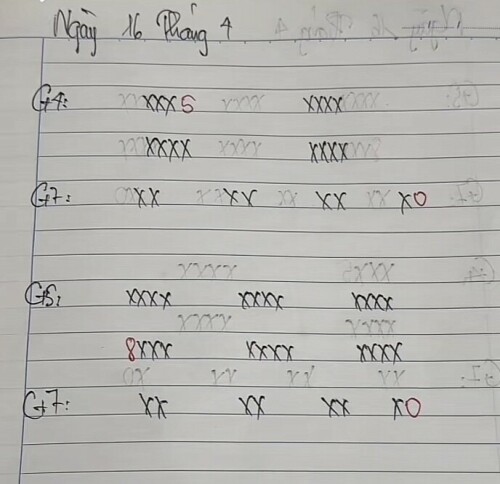 Ngày 16 Tháng 4
G4: XXX5 XXXX
XXXX XXXX
G7: XX XX XX X0
G5: XXXX XXXX XXXX
8XXX XXXX XXXX
G7: XX XX XX X0